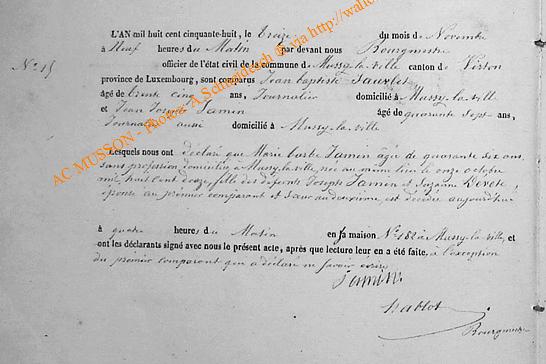 L'AN mil huit cent cinquante-huit, le treize du mois de Novembre
à Neuf heures du Matin par devant nous Bourgmestre
N° 15
officier de l'état civil de la commune de Mussy-la-ville canton de Virton
province de Luxembourg, sont comparus Jean baptiste Sauvlet
âgé de trente cinq ans, Journalier domicilié à Mussy-la-ville
et Jean Joseph Jamin âgé de quarante sept ans,
Journalier aussi domicilié à Mussy-la-ville
Lesquels nous ont déclaré que Marie barbe Jamin âgée de quarante six ans
sans profession domiciliée à Mussy-la-ville, née au même lieu le onze octobre
mil huit cent douze, fille des défunts Joseph Jamin et Suzanne
épouse au premier comparant et sœur au deuxième, est décédée aujourd'hui
à quatre heures du Matin en sa maison N° 182 à Mussy-la-ville, et
ont les déclarants signé avec nous le présent acte, après que lecture leur en a été faite, à l'exception
du premier comparant qui a déclaré ne savoir écrire
Jamin
Bourgmestre
AC MUSSON - Photos: A.Schneidesch © via http://wahe